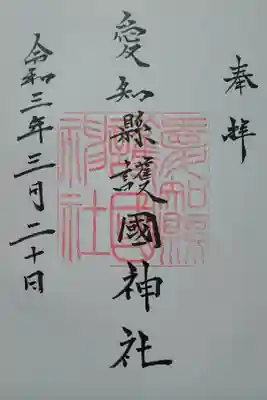 奉拝
愛知縣護國神社
令和三年三月二十日
愛知縣護國神社